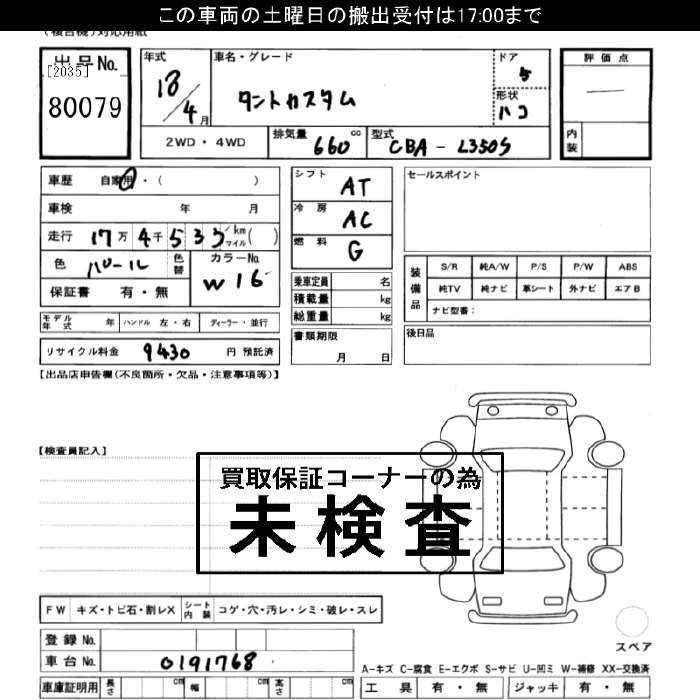 この車両の土曜日の搬出受付は17:00まで
出品No.
[2035]
80079
年式
18/4月
車名・グレード
タントカスタム
ドア
5
形状
ハコ
評価点
—
内装
2WD・4WD
排気量
660cc
型式
CBA-L350S
車歴 自家用・( )
車検 年 月
走行 17万4千533km マイル( )
色 パール
色替
カラーNo.
W16
保証書 有・無
シフト
AT
冷房
AC
燃料
G
乗車定員 名
積載量 kg
総重量 kg
書類期限
月 日
セールスポイント
装備品
S/R 純A/W P/S P/W ABS
純TV 純ナビ 革シート 外ナビ エアB
ナビ型番:
後日品
モデル年式 年 ハンドル 左・右 ディーラー・並行
リサイクル料金 9430 円 預託済
【出品店申告欄(不良箇所・欠品・注意事項等)】
【検査員記入】
買取保証コーナーの為
未検査
FW キズ・トビ石・割レX シート内装 コゲ・穴・汚レ・シミ・破レ・スレ
登録No.
車台No. 0191768
車庫証明用 長さ cm 幅 cm 高さ cm
スペア
A-キズ C-腐食 E-エクボ S-サビ U-凹ミ W-補修 XX-交換済
工具 有・無 ジャッキ 有・無